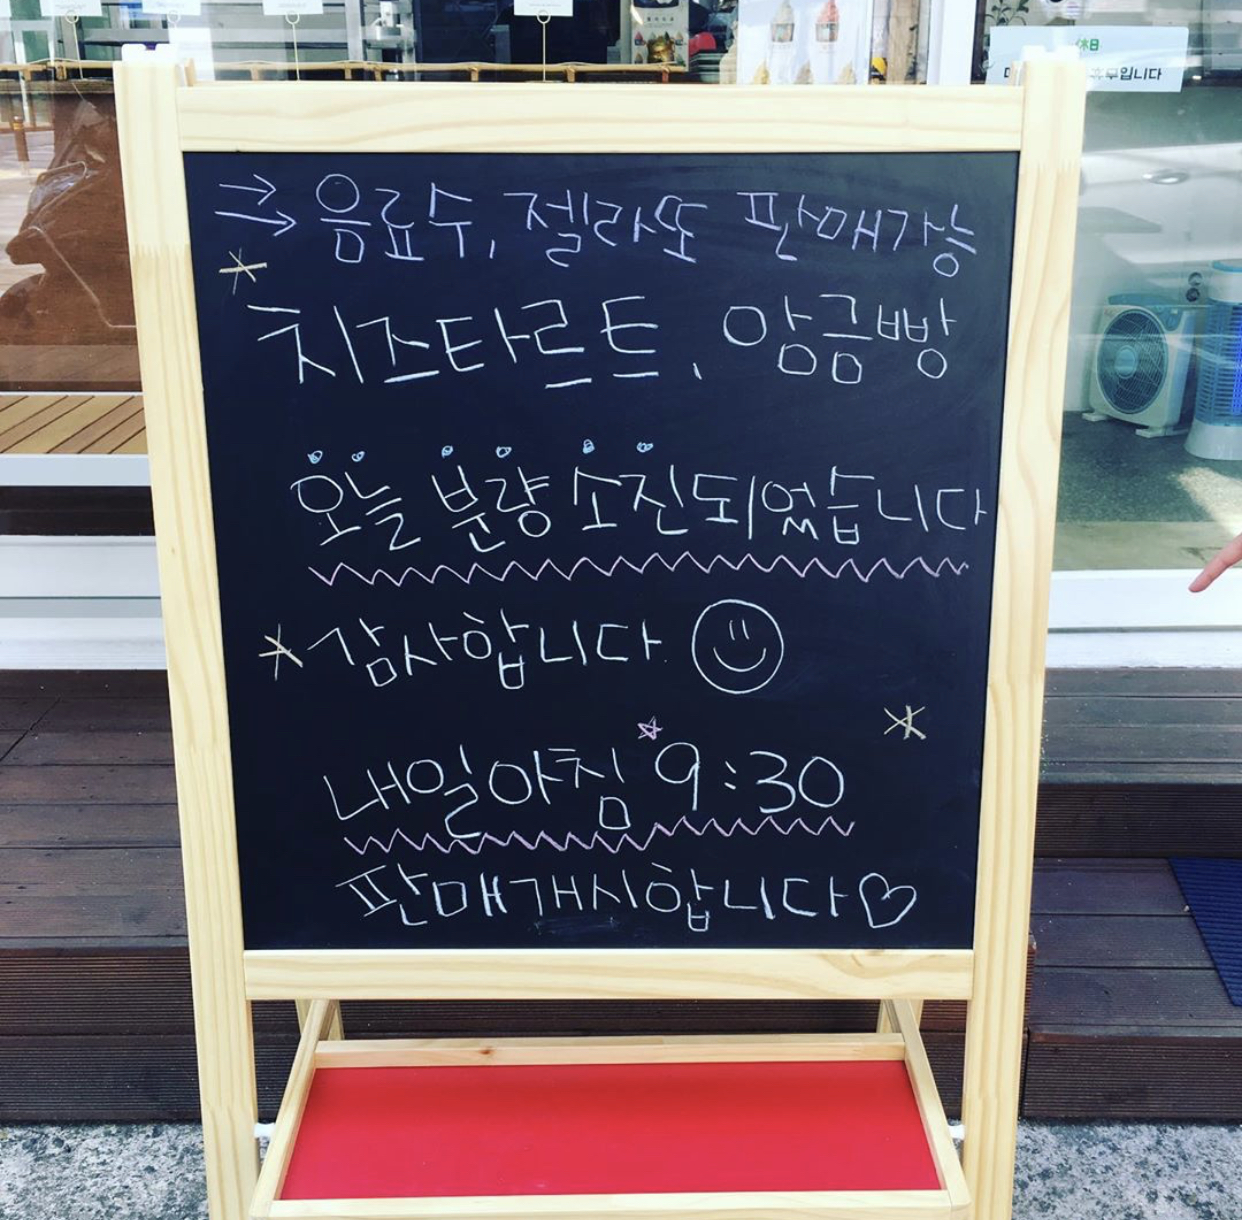 休日
휴무입니다
→ 음료수, 젤라또 판매가능
치즈타르트, 앙금빵
오늘 분량 소진되었습니다
감사합니다
내일아침 9:30
판매개시합니다♡